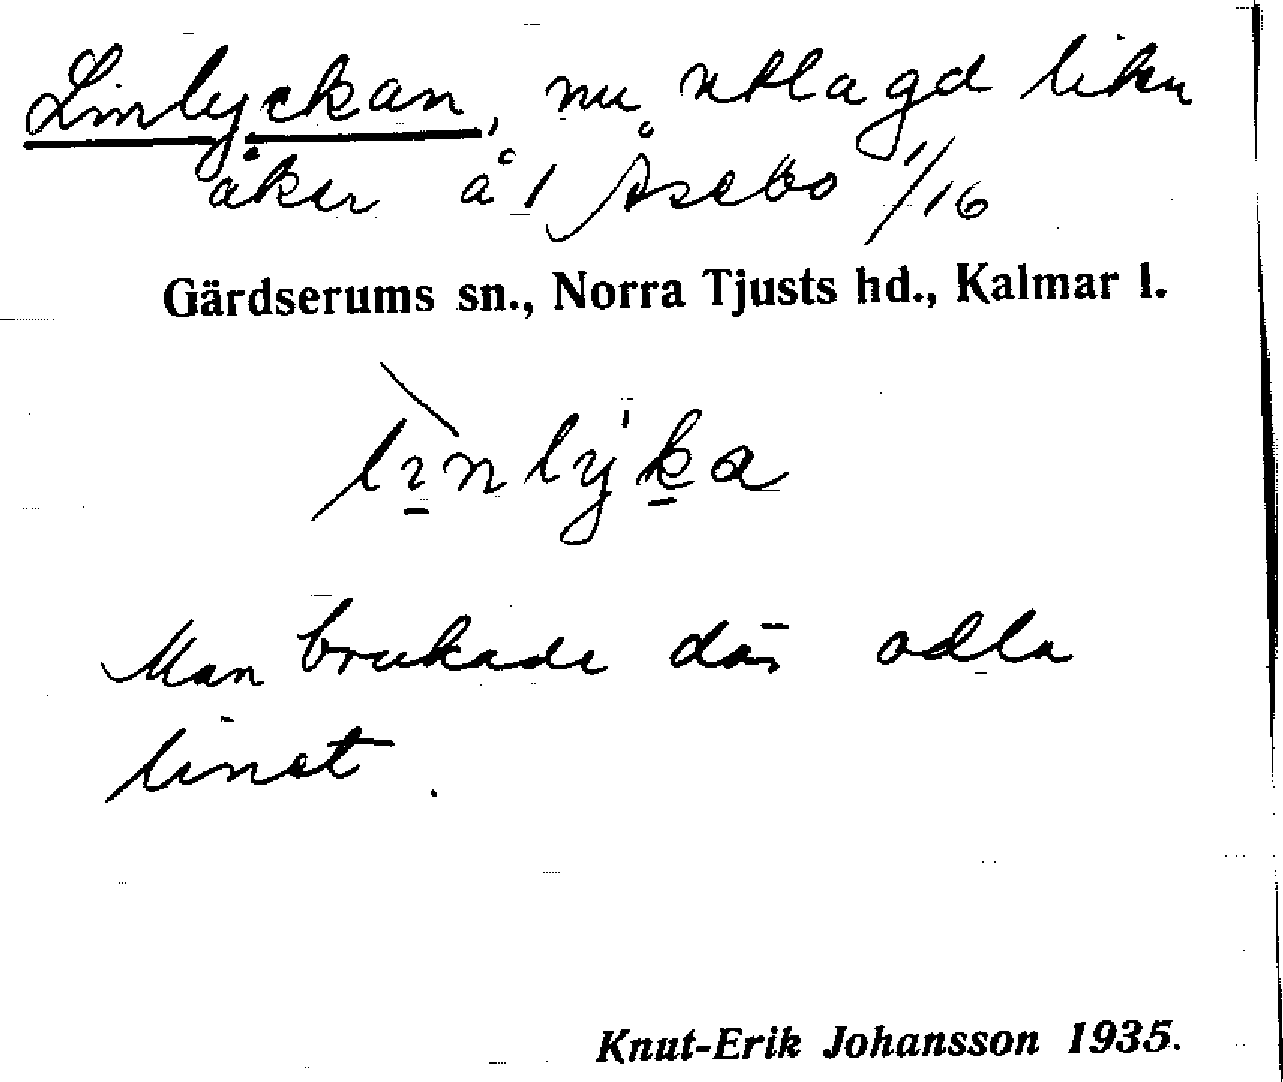 Linlyckan, nu utlagd liten
åker å 1 Åsebo 1/16
Gärdserums sn., Norra Tjusts hd., Kalmar l.
lìnlyka
Man brukade där odla
linet.
Knut-Erik Johansson 1935.